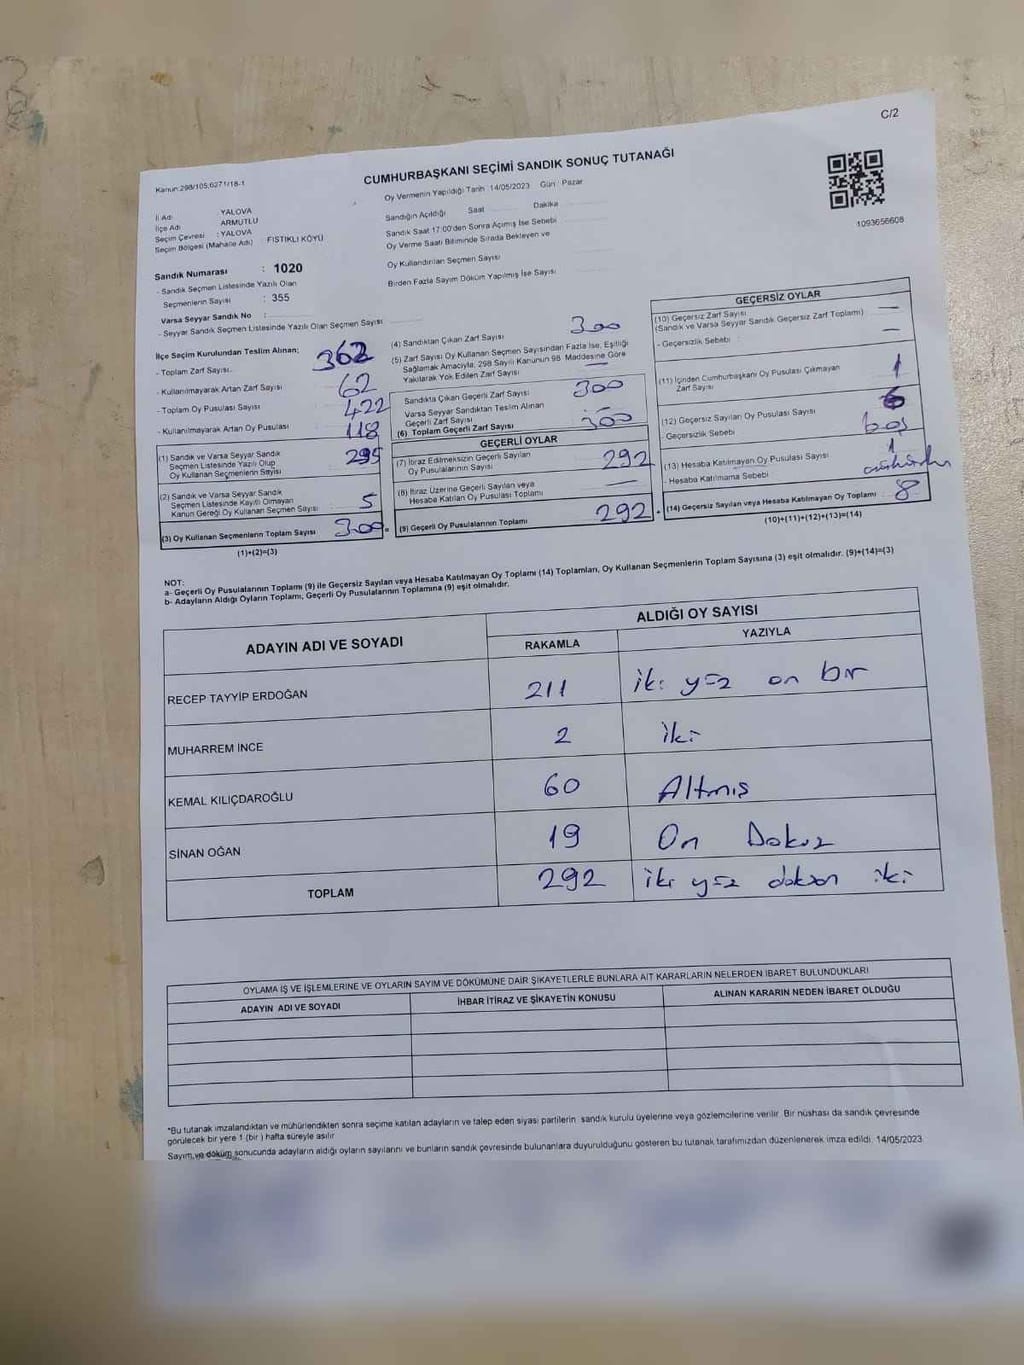 C/2
Kanun:298/105;6271/18-1
CUMHURBAŞKANI SEÇİMİ SANDIK SONUÇ TUTANAĞI
Oy Vermenin Yapıldığı Tarih 14/05/2023 Gün : Pazar
1093656608
İl Adı YALOVA
İlçe Adı ARMUTLU
Seçim Çevresi : YALOVA
Seçim Bölgesi (Mahalle Adı) FISTIKLI KÖYÜ
Sandık Numarası : 1020
- Sandık Seçmen Listesinde Yazılı Olan
Seçmenlerin Sayısı : 355
Varsa Seyyar Sandık No :
- Seyyar Sandık Seçmen Listesinde Yazılı Olan Seçmen Sayısı
Sandığın Açıldığı Saat Dakika
Sandık Saat 17:00'den Sonra Açılmış İse Sebebi
Oy Verme Saati Bitiminde Sırada Bekleyen ve
Oy Kullandırılan Seçmen Sayısı
Birden Fazla Sayım Döküm Yapılmış İse Sayısı
İlçe Seçim Kurulundan Teslim Alınan;
- Toplam Zarf Sayısı 362
- Kullanılmayarak Artan Zarf Sayısı 62
- Toplam Oy Pusulası Sayısı 422
- Kullanılmayarak Artan Oy Pusulası 118
(1) Sandık ve Varsa Seyyar Sandık
Seçmen Listesinde Yazılı Olup
Oy Kullanan Seçmenlerin Sayısı 295
(2) Sandık ve Varsa Seyyar Sandık
Seçmen Listesinde Kayıtlı Olmayan
Kanun Gereği Oy Kullanan Seçmen Sayısı 5
(3) Oy Kullanan Seçmenlerin Toplam Sayısı 300
(1)+(2)=(3)
(4) Sandıktan Çıkan Zarf Sayısı 300
(5) Zarf Sayısı Oy Kullanan Seçmen Sayısından Fazla İse, Eşitliği
Sağlamak Amacıyla, 298 Sayılı Kanunun 98. Maddesine Göre
Yakılarak Yok Edilen Zarf Sayısı —
Sandıkta Çıkan Geçerli Zarf Sayısı 300
Varsa Seyyar Sandıktan Teslim Alınan
Geçerli Zarf Sayısı
(6) Toplam Geçerli Zarf Sayısı 300
GEÇERLİ OYLAR
(7) İtiraz Edilmeksizin Geçerli Sayılan
Oy Pusulalarının Sayısı 292
(8) İtiraz Üzerine Geçerli Sayılan veya
Hesaba Katılan Oy Pusulası Toplamı —
(9) Geçerli Oy Pusulalarının Toplamı 292
GEÇERSİZ OYLAR
(10) Geçersiz Zarf Sayısı —
(Sandık ve Varsa Seyyar Sandık Geçersiz Zarf Toplamı)
- Geçersizlik Sebebi : —
(11) İçinden Cumhurbaşkanı Oy Pusulası Çıkmayan
Zarf Sayısı 1
(12) Geçersiz Sayılan Oy Pusulası Sayısı 6
- Geçersizlik Sebebi boş
(13) Hesaba Katılmayan Oy Pusulası Sayısı 1
- Hesaba Katılmama Sebebi
(14) Geçersiz Sayılan veya Hesaba Katılmayan Oy Toplamı 8
(10)+(11)+(12)+(13)=(14)
NOT:
a- Geçerli Oy Pusulalarının Toplamı (9) ile Geçersiz Sayılan veya Hesaba Katılmayan Oy Toplamı (14) Toplamları, Oy Kullanan Seçmenlerin Toplam Sayısına (3) eşit olmalıdır. (9)+(14)=(3)
b- Adayların Aldığı Oyların Toplamı, Geçerli Oy Pusulalarının Toplamına (9) eşit olmalıdır.
ADAYIN ADI VE SOYADI ALDIĞI OY SAYISI
RAKAMLA YAZIYLA
RECEP TAYYİP ERDOĞAN 211 iki yüz on bir
MUHARREM İNCE 2 iki
KEMAL KILIÇDAROĞLU 60 Altmış
SİNAN OĞAN 19 On Dokuz
TOPLAM 292 iki yüz doksan iki
OYLAMA İŞ VE İŞLEMLERİNE VE OYLARIN SAYIM VE DÖKÜMÜNE DAİR ŞİKAYETLERLE BUNLARA AİT KARARLARIN NELERDEN İBARET BULUNDUKLARI
ADAYIN ADI VE SOYADI İHBAR İTİRAZ VE ŞİKAYETİN KONUSU ALINAN KARARIN NEDEN İBARET OLDUĞU
*Bu tutanak imzalandıktan ve mühürlendikten sonra seçime katılan adayların ve talep eden siyasi partilerin sandık kurulu üyelerine veya gözlemcilerine verilir. Bir nüshası da sandık çevresinde
görülecek bir yere 1 (bir ) hafta süreyle asılır
Sayım ve döküm sonucunda adayların aldığı oyların sayılarını ve bunların sandık çevresinde bulunanlara duyurulduğunu gösteren bu tutanak tarafımızdan düzenlenerek imza edildi. 14/05/2023